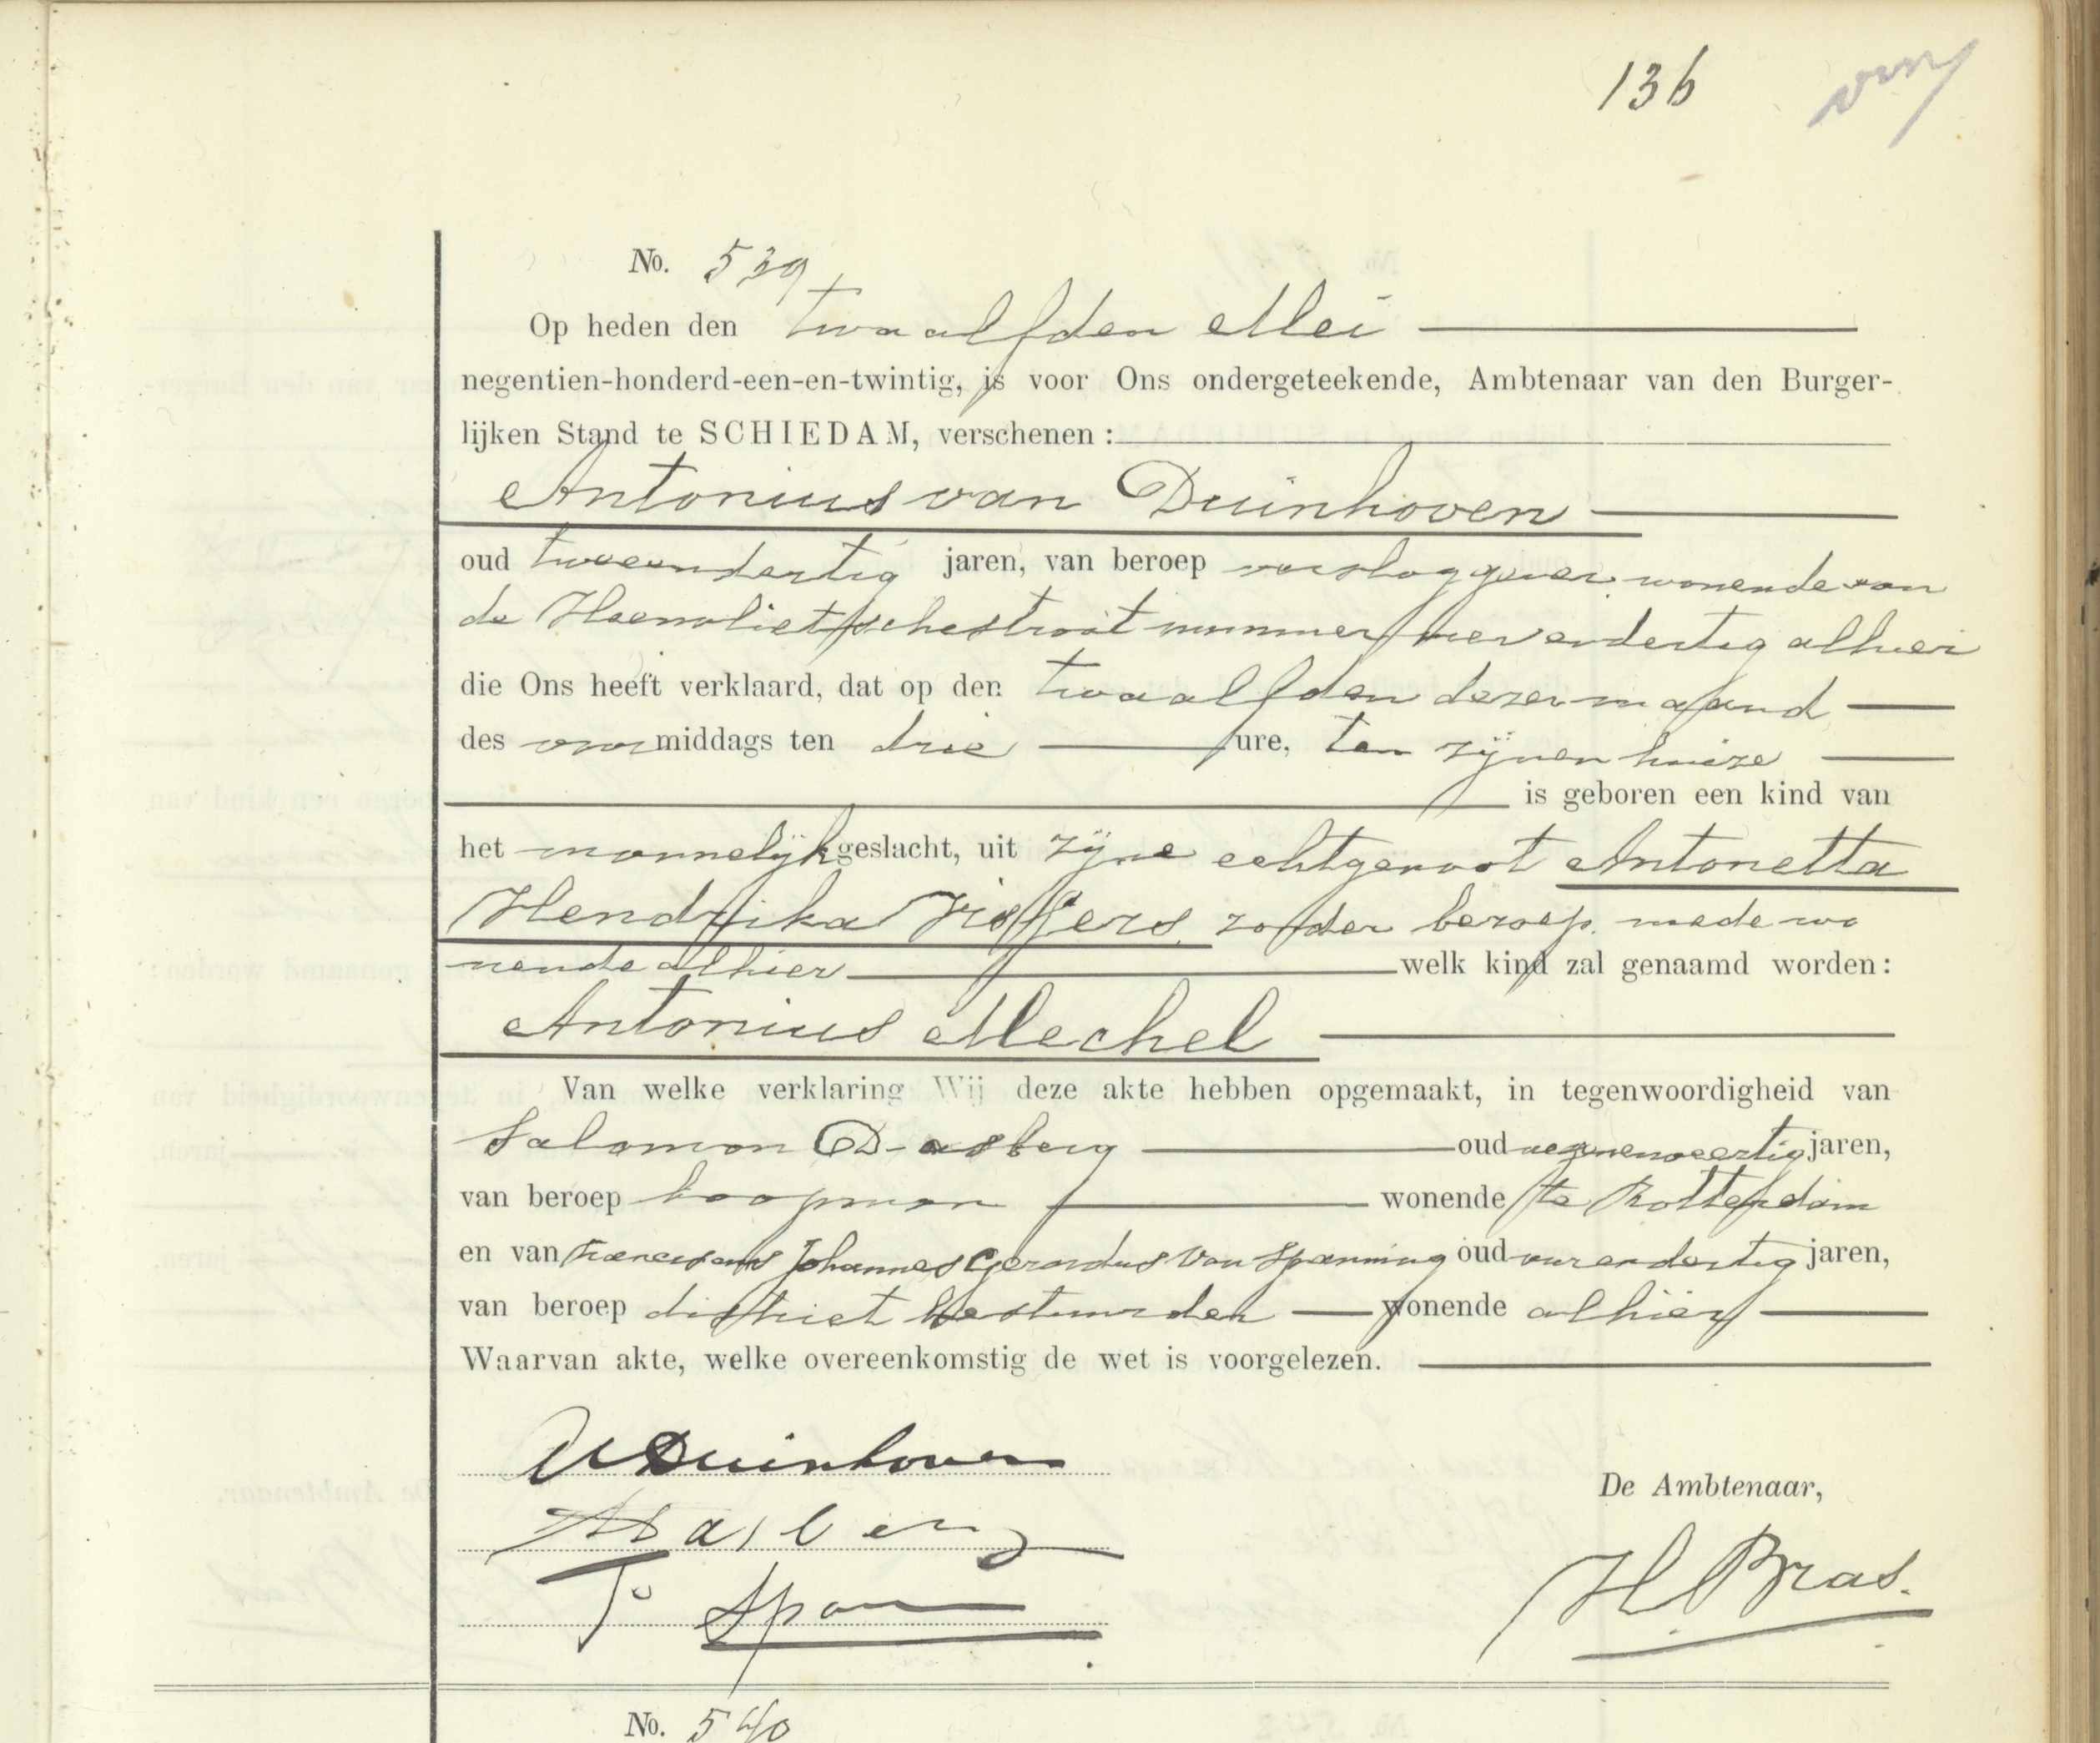 136
No. 539
Op heden den twaalfden Mei
negentien-honderd-een-en-twintig, is voor Ons ondergeteekende, Ambtenaar van den Burger-
lijken Stand te SCHIEDAM, verschenen:
Antonius van Duinhoven
oud tweeendertig jaren, van beroep verslaggever, wonende aan
de Heenvlietschestraat nummer vierendertig alhier
die Ons heeft verklaard, dat op den twaalfden dezer maand
des voormiddags ten drie ure, ten zijnen huize
is geboren een kind van
het mannelijk geslacht, uit zijne echtgenoot Antonetta
Hendrika Vissers, zonder beroep, mede wo
nende alhier welk kind zal genaamd worden:
Antonius Mechel
Van welke verklaring Wij deze akte hebben opgemaakt, in tegenwoordigheid van
Salomon Dasberg oud negenenveertig jaren,
van beroep koopman wonende te Rotterdam
en van Franciscus Johannes Gerardus van Spanning oud vierendertig jaren,
van beroep district bestuurder wonende alhier
Waarvan akte, welke overeenkomstig de wet is voorgelezen.
AvDuinhoven
De Ambtenaar,
Dasberg
H. Bras.
No. 540